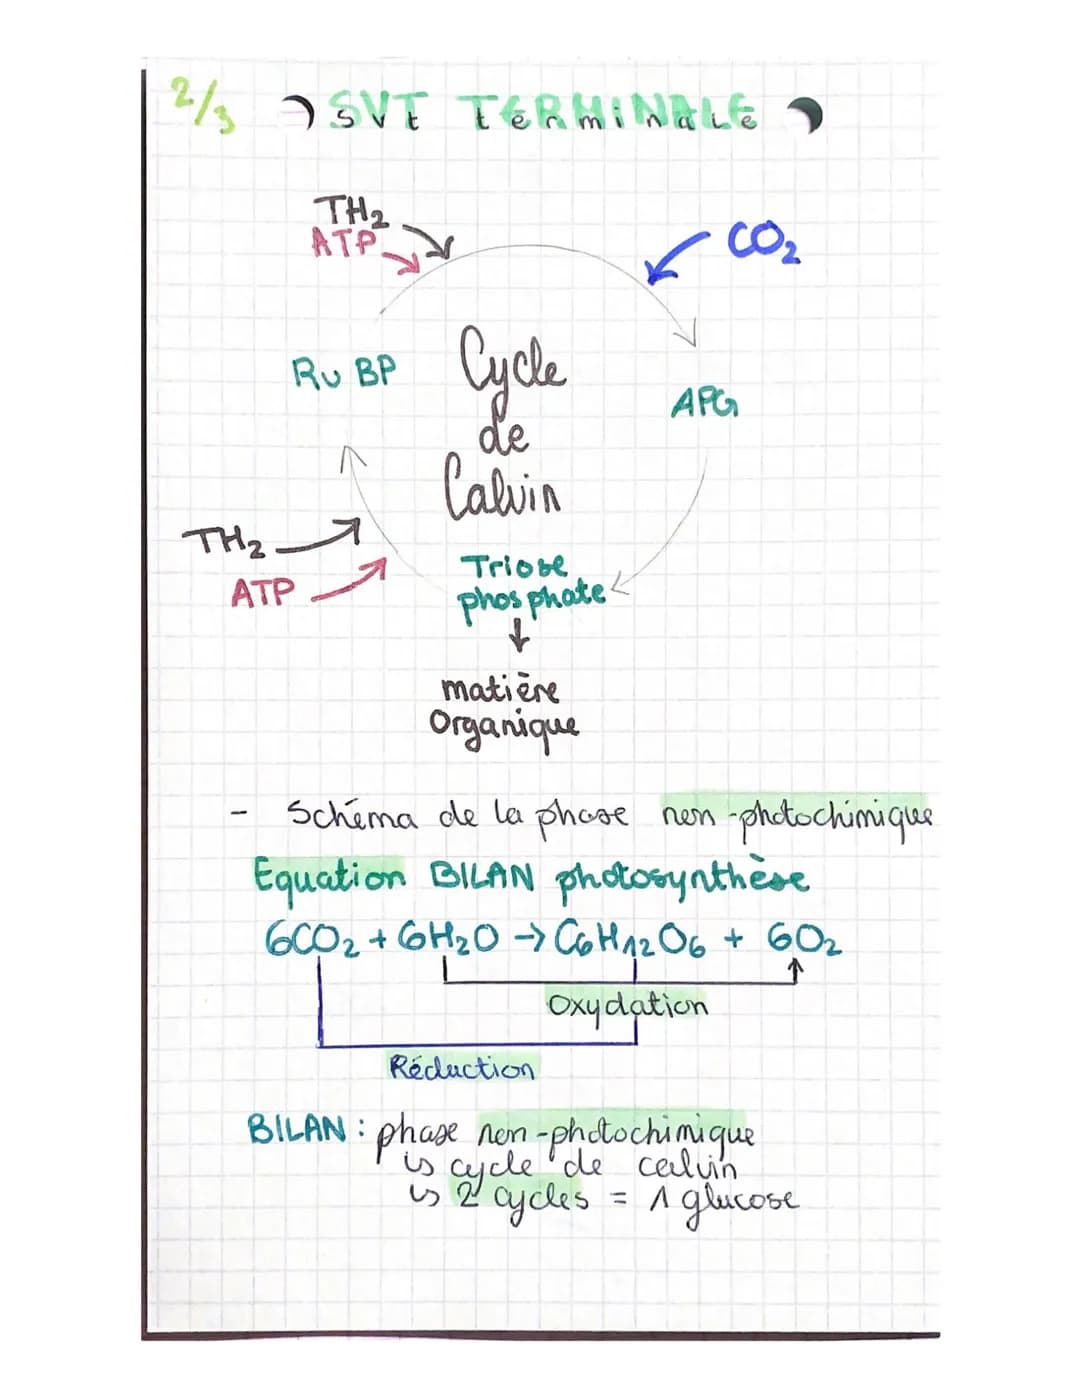 2/3 SVT TERMINALE
svt terminale
TH₂
ATP
CO₂
RuBP
Cycle
de
Calvin
APG
TH₂
ATP
Triose
phosphate
matière
Organique
- Schéma de la phase non-photochimique
Equation BILAN photosynthèse
6CO₂ + 6H₂O → C₆H₁₂O₆ + 6O₂
Oxydation
Réduction
BILAN : phase non-photochimique
↳ cycle de calvin
↳ 2 cycles = 1 glucose